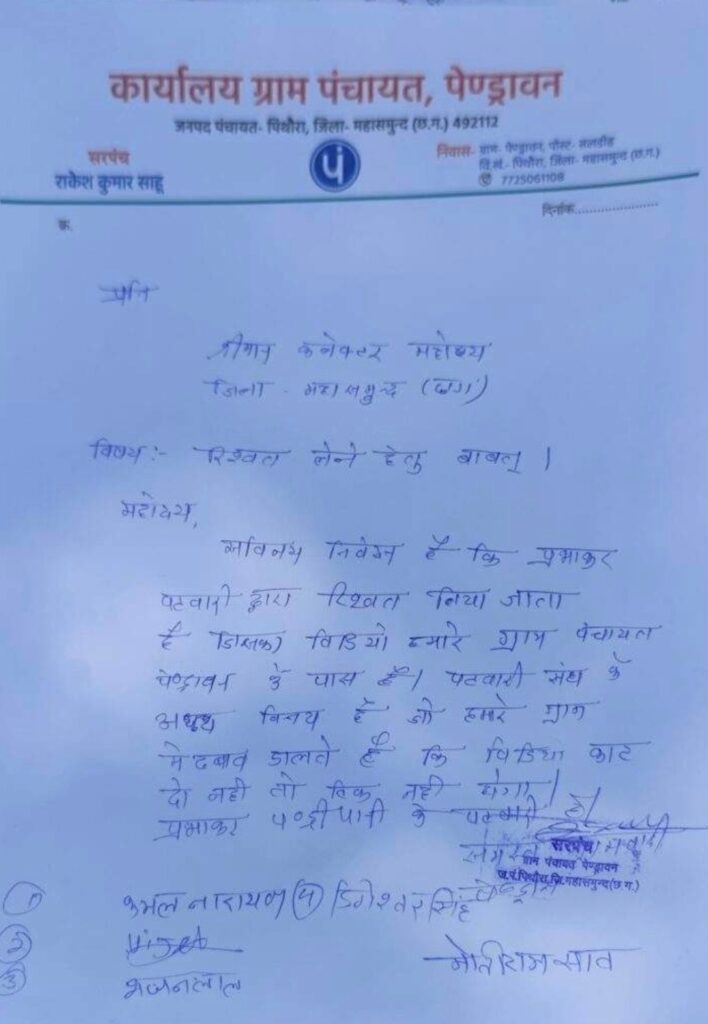 कार्यालय ग्राम पंचायत, पेण्ड्रावन
जनपद पंचायत- पिथौरा, जिला- महासमुन्द (छ.ग.) 492112
सरपंच
राकेश कुमार साहू
पं
निवास- ग्राम- पेण्ड्रावन, पोस्ट- सलडीह
वि.खं.- पिथौरा, जिला- महासमुन्द (छ.ग.)
7725061108
क्र.
दिनांक.....................
प्रति
श्रीमान कलेक्टर महोदय
जिला - महासमुन्द (छग)
विषय:- रिश्वत लेने हेतु बाबत् ।
महोदय,
सविनय निवेदन है कि प्रभाकर
पटवारी द्वारा रिश्वत लिया जाता
है जिसका विडियो हमारे ग्राम पंचायत
पेण्ड्रावन के पास है। पटवारी संघ के
अध्यक्ष विनय है जो हमारे ग्राम
मे दबाव डालते है कि विडियो काट
दो नही तो ठिक नही होगा।
प्रभाकर पण्ड्रीपानी के पटवारी है।
समस्त
सरपंच
ग्राम पंचायत पेण्ड्रावन
ज.पं.पिथौरा,जि.महासमुन्द(छ.ग.)
1) कमल नारायण 4) डिगेश्वर सिंह
2)
3) भजनलाल
मोतीराम साव